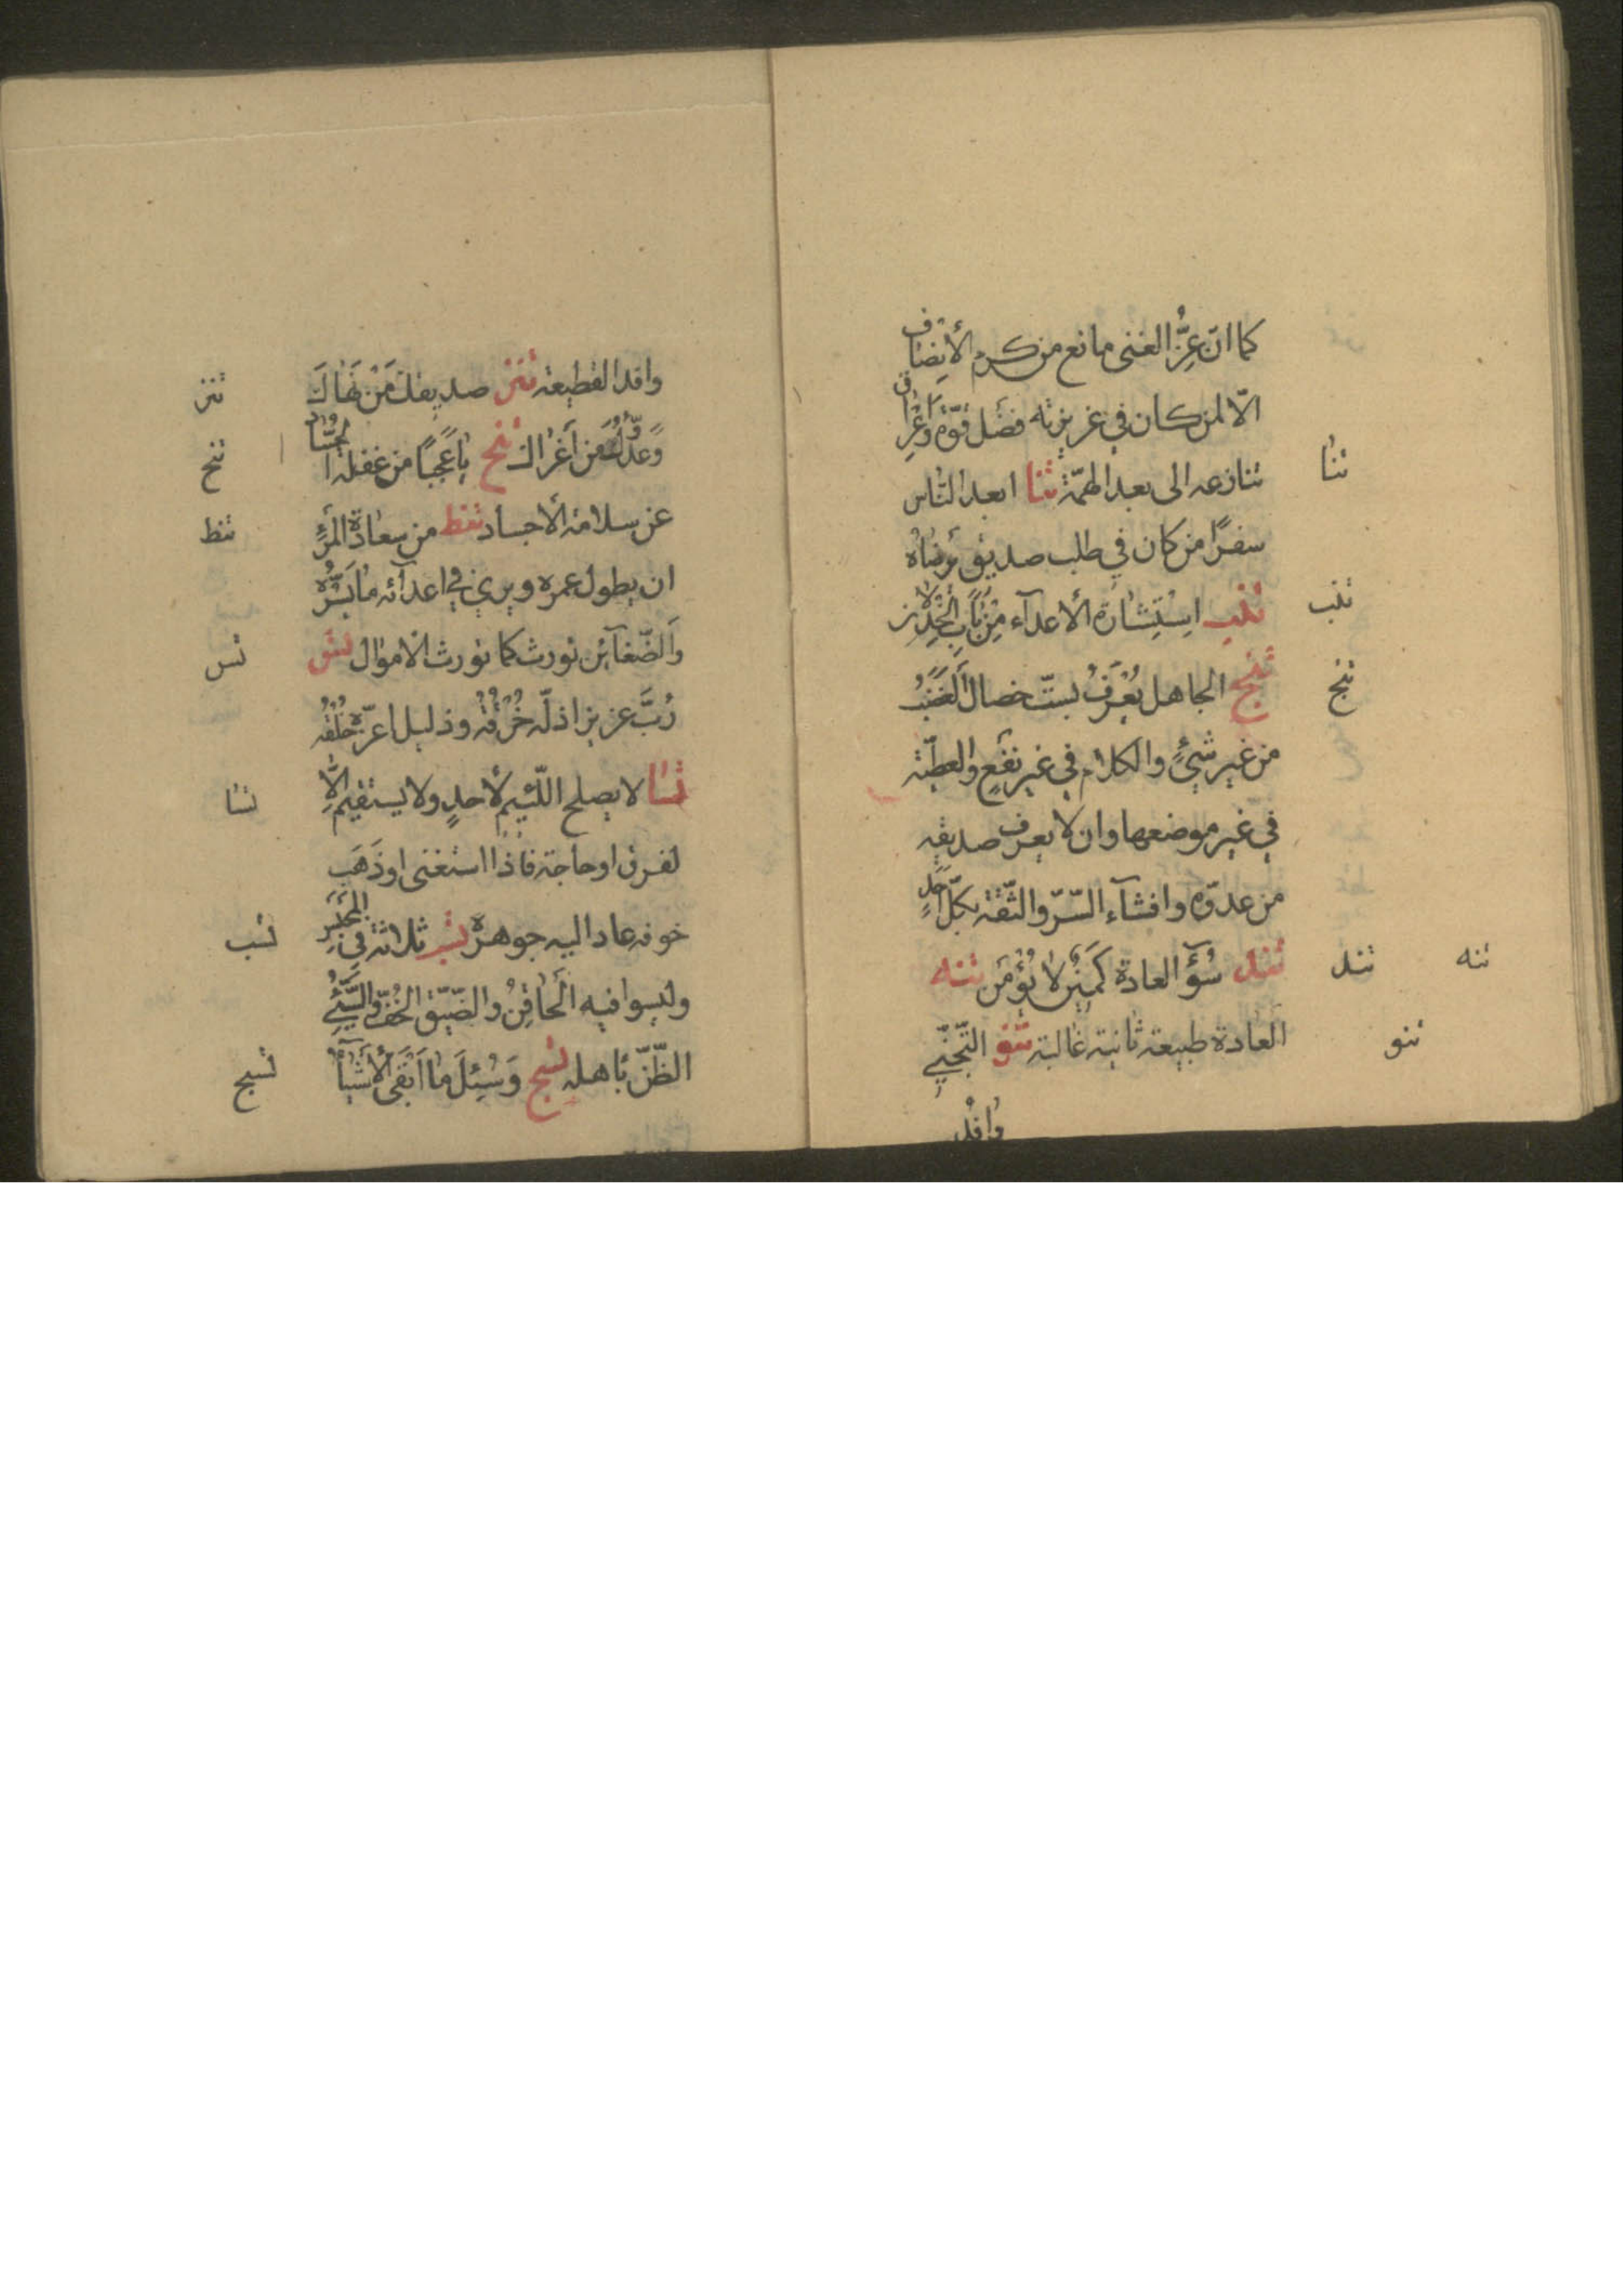 كما انّ عِزُّ الغنى مانع من كرم الأنِصاف
الّا لمن كان في غريزته فضل قوّة وَاَعْراق
تنازعه الى بعد الهمّة ثنا ابعد النّاس
ثنا
سفرًا من كان في طلب صديق يَرضاه
ثنب اِستِشارة الأعدآء مِن بابِ الخِذلان
ثنب
ثنج الجاهل يُعْرَفُ بستّ خصال اَلغَضَبُ
ثنج
من غير شئٍ والكلام في غير نفعٍ والعطيّة
في غير موضعها وان لا يعرف صديقه
من عدوّه وافشآء السّرّ والثّقة بكلّ احَدٍ
ثند سُوٓء العادة كَمينٌ لا يُؤمَن ثنه
ثند
ثنه
العادة طبيعة ثانية غالبة ثنو التّجنّي
ثنو
وافد
وافد القطيعة ثنز صديقك مَنْ نَهاكَ
ثنز
وَعدُوُّكَ مَن اَغراك ثنح ياعَجَبًا من غفلة الحُسّاد
ثنح
عن سلامة الأجساد ثنط من سعادة المرءِ
ثنط
ان يطول عمره ويرى في اعدآئه ما يَسُرُّه
وَالضّغآئن تورث كما تورث الاموال ثس
ثس
رُبَّ عزيز اذلّه خُرْقُهُ وذليل اعزّه خُلْقُهُ
ثسا لا يصلح اللّئيم لأحدٍ ولا يستقيم اِلَّا
ثسا
لفرق او حاجة فاذا استغنى او ذَهَبَ
خوفه عاد اليه جوهرة ثسب ثلاثة في المَجلِسِ
ثسب
وليسوا فيه اَلحاقِنُ والضّيّق الخُفّ والسَّيّئُ
الظّنّ بأهله ثسج وَسُئِلَ ما اَبقَى الأشيآءِ
ثسج